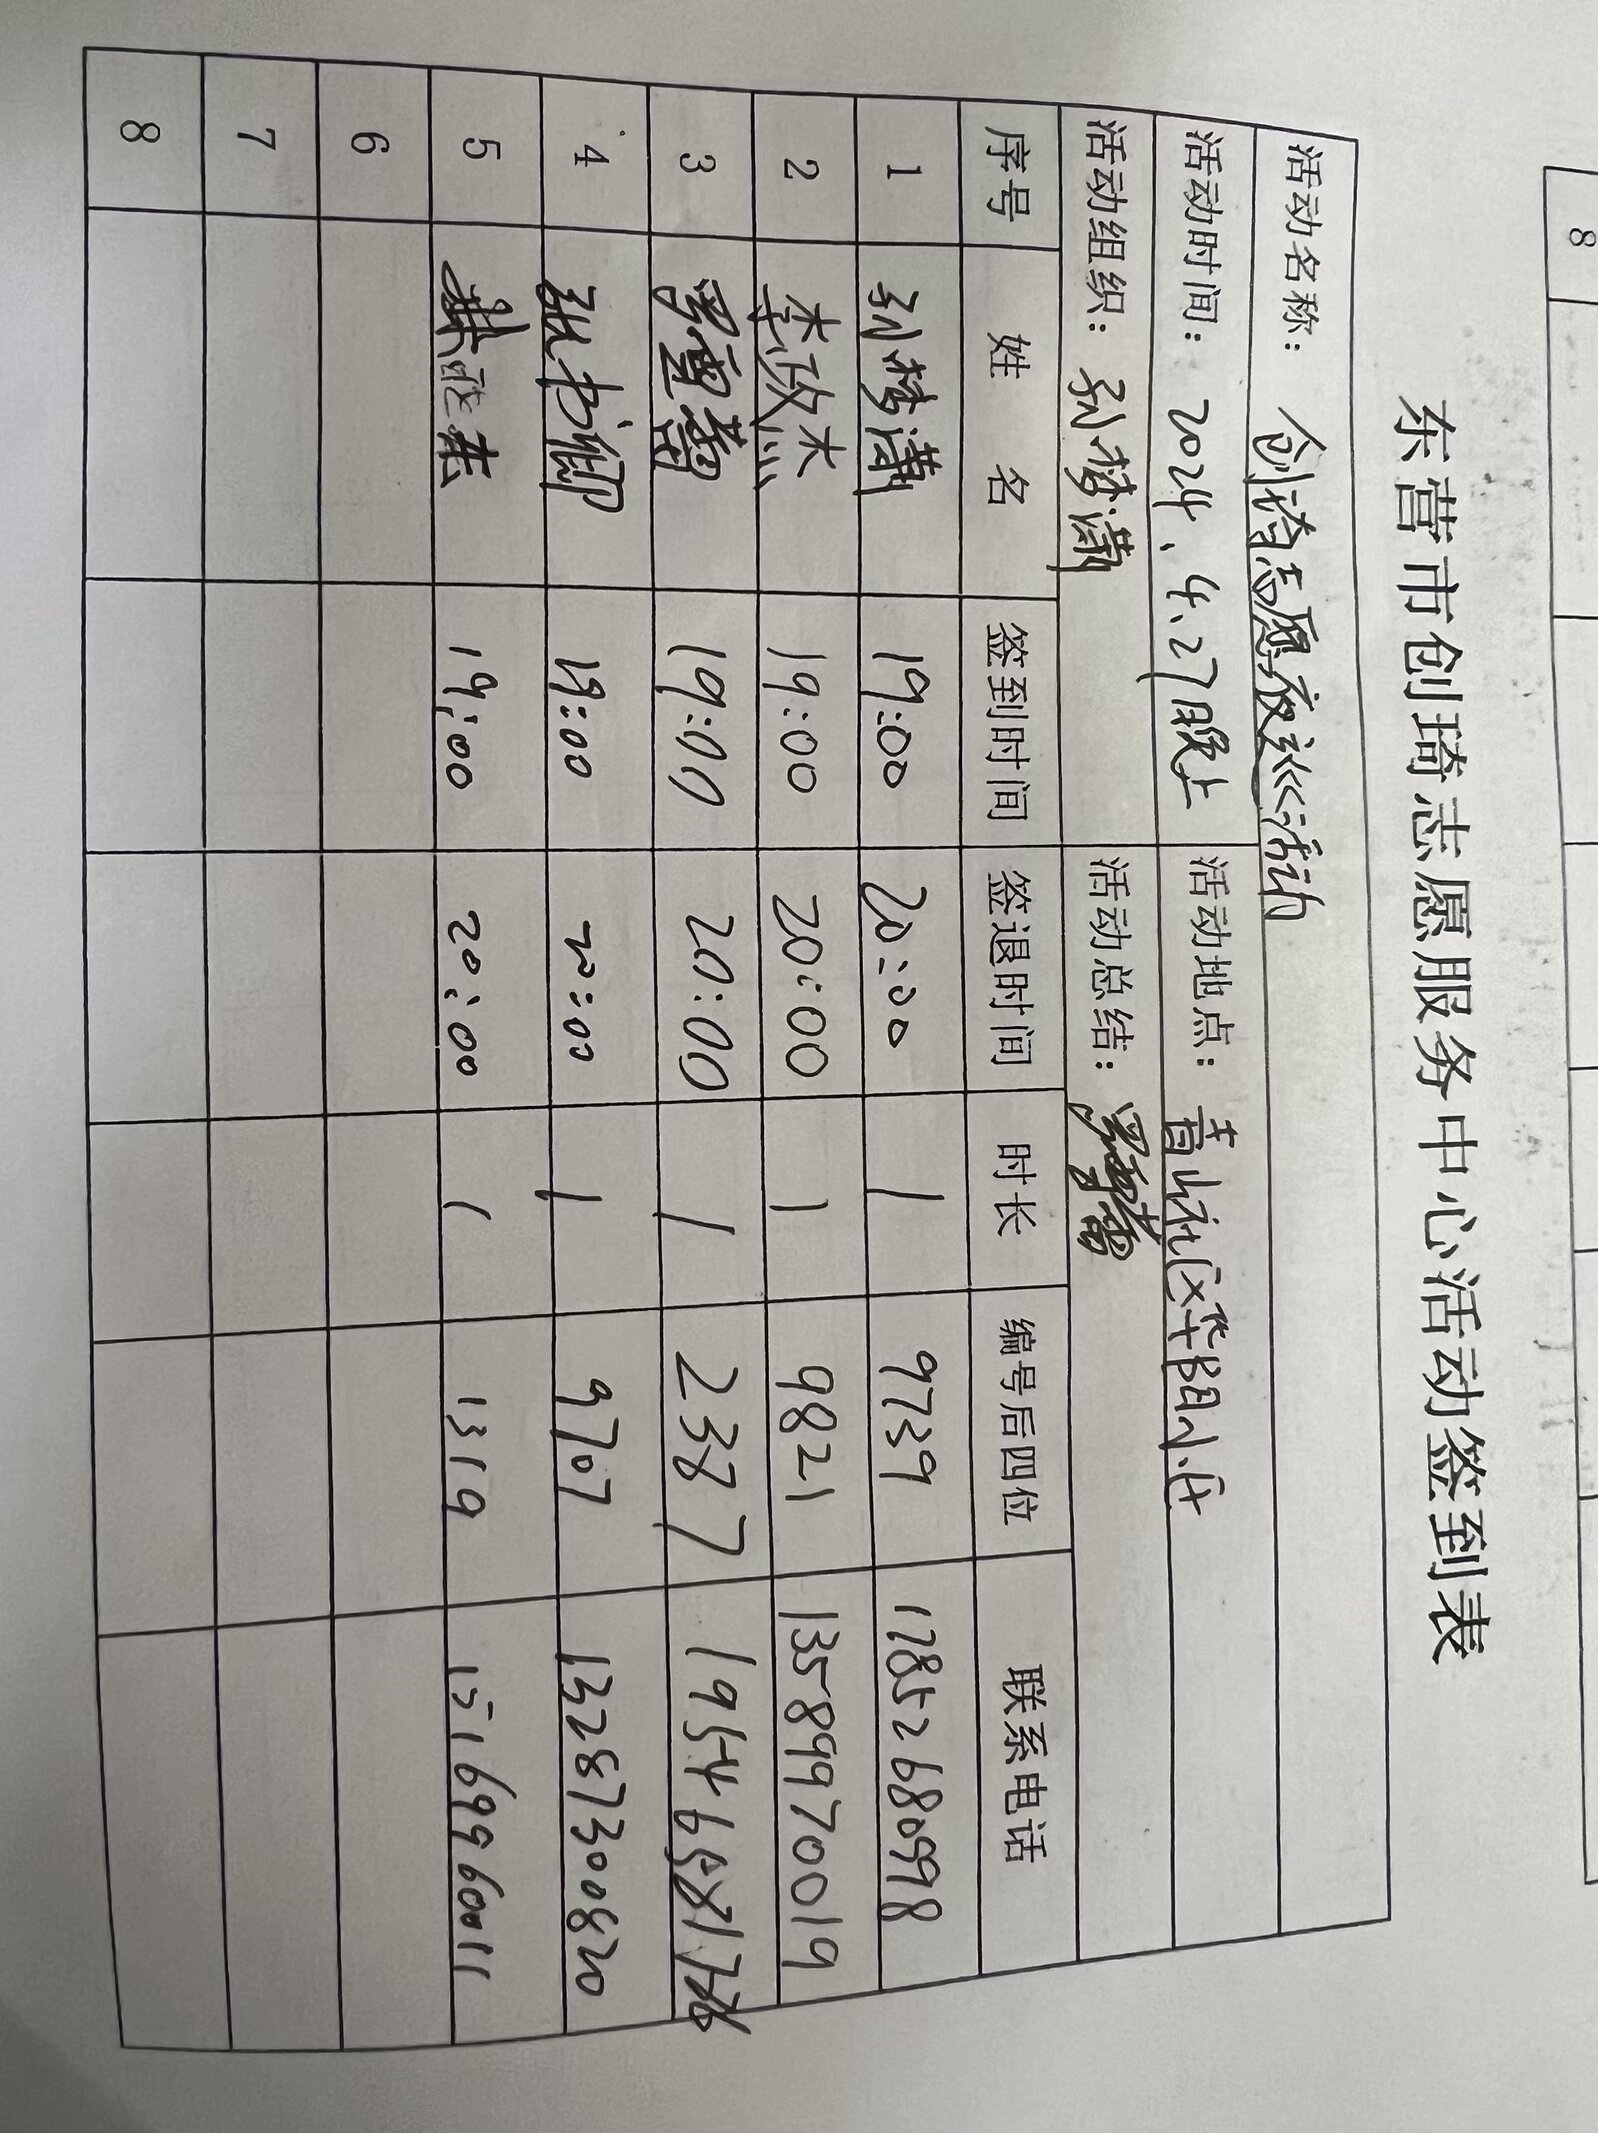 东营市创琦志愿服务中心活动签到表
活动名称：创琦志愿夜巡活动
活动时间：2024、4、27晚上 活动地点：青山社区华阳小区
活动组织：孙梦潇 活动总结：
序号 姓名 签到时间 签退时间 时长 编号后四位 联系电话
1 孙梦潇 19:00 20:00 1 9739 17852680998
2 李政杰 19:00 20:00 1 9821 13589970019
3 19:00 20:00 1 2387
4 张书卿 19:00 20:00 1 9707 13287300820
5 19:00 20:00 1 1319 15169960011
6
7
8
8